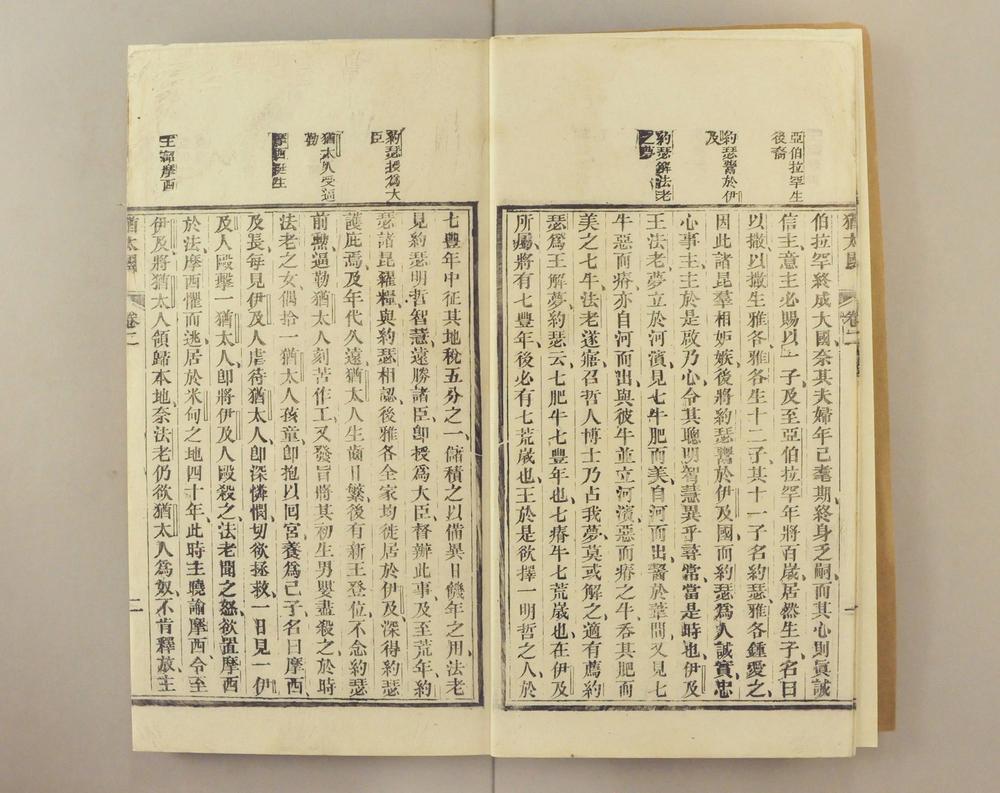 亞伯拉罕生
後裔
約瑟鬻於伊
及
約瑟解法老
之夢
猶太國 卷二 一
伯拉罕終成大國奈其夫婦年已耄期終身乏嗣而其心則眞誠
信主意主必賜以一子及至亞伯拉罕年將百歲居然生子名曰
以撒以撒生雅各雅各生十二子其十一子名約瑟雅各鍾愛之
因此諸昆羣相妒嫉後將約瑟鬻於伊及國而約瑟爲人誠實忠
心事主主於是啟乃心令其聰明智慧異乎尋常當是時也伊及
王法老夢立於河濱見七牛肥而美自河而出嚙於葦間又見七
牛惡而瘠亦自河而出與彼牛並立河濱惡而瘠之牛吞其肥而
美之七牛法老遂寤召哲人博士乃占我夢莫或解之適有薦約
瑟爲王解夢約瑟云七肥牛七豐年也七瘠牛七荒歲也在伊及
所屬將有七豐年後必有七荒歲也王於是欲擇一明哲之人於
約瑟授爲大
臣
猶太人受逼
勒
摩西誕生
主諭摩西
七豐年中征其地稅五分之一儲積之以備異日饑年之用法老
見約瑟明哲智慧遠勝諸臣卽授爲大臣督辦此事及至荒年約
瑟諸昆糴糧與約瑟相認後雅各全家均徙居於伊及深得約瑟
護庇焉及年代久遠猶太人生齒日繁後有新王登位不念約瑟
前勲逼勒猶太人刻苦作工又發旨將其初生男嬰盡殺之於時
法老之女偶拾一猶太人孩童卽抱以回宮養爲己子名曰摩西
及長每見伊及人虐待猶太人卽深憐憫切欲拯救一日見一伊
及人毆擊一猶太人卽將伊及人毆殺之法老聞之怒欲置摩西
於法摩西懼而逃居於米甸之地四十年此時主曉諭摩西令至
伊及將猶太人領歸本地奈法老仍欲猶太人爲奴不肯釋放主
猶太國 卷二 二